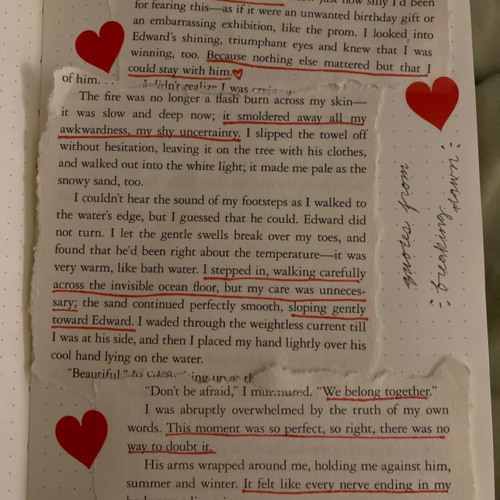 for fearing this—as if it were an unwanted birthday gift or
an embarrassing exhibition, like the prom. I looked into
Edward's shining, triumphant eyes and knew that I was
winning, too. Because nothing else mattered but that I
could stay with him.
of him. didn't realize I was
The fire was no longer a flash burn across my skin—
it was slow and deep now; it smoldered away all my
awkwardness, my shy uncertainty. I slipped the towel off
without hesitation, leaving it on the tree with his clothes,
and walked out into the white light; it made me pale as the
snowy sand, too.
I couldn't hear the sound of my footsteps as I walked to
the water's edge, but I guessed that he could. Edward did
not turn. I let the gentle swells break over my toes, and
found that he'd been right about the temperature—it was
very warm, like bath water. I stepped in, walking carefully
across the invisible ocean floor, but my care was unneces-
sary; the sand continued perfectly smooth, sloping gently
toward Edward. I waded through the weightless current till
I was at his side, and then I placed my hand lightly over his
cool hand lying on the water.
"Beautiful,"
"Don't be afraid," I murmured. "We belong together."
I was abruptly overwhelmed by the truth of my own
words. This moment was so perfect, so right, there was no
way to doubt it.
His arms wrapped around me, holding me against him,
summer and winter. It felt like every nerve ending in my
quotes from
breaking dawn